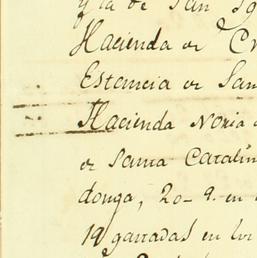 y la de San Ig
Hacienda de Cr
Estancia de San
Hacienda Noria d
de Santa Catalin
donga, 20-9. en
19 garradas en los